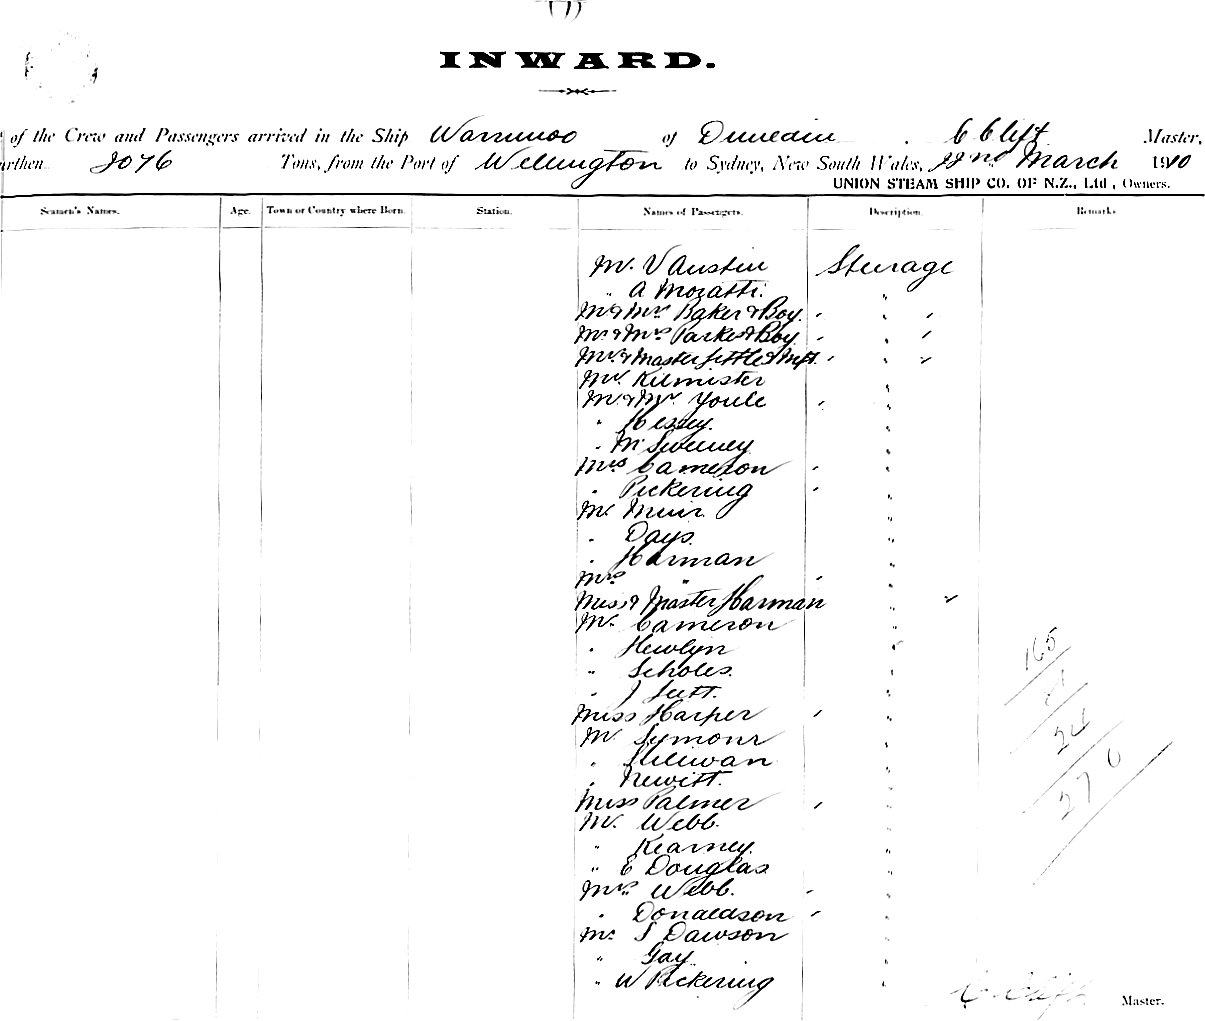 INWARD.
of the Crew and Passengers arrived in the Ship Warrimoo of Dunedin . C Clift Master,
arthen 2076 Tons, from the Port of Wellington to Sydney, New South Wales, 22nd March 1910
UNION STEAM SHIP CO. OF N.Z., Ltd, Owners.
Seamen's Names. Age. Town or Country where Born. Station. Names of Passengers. Description. Remarks
Mr. V Austin Steerage
" A Mozatti. "
Mr & Mrs Baker & Boy. "
Mr & Mrs Parker & Boy "
Mrs & Master Little & Inft. "
Mr. Kilmister "
Mr & Mrs Youle "
" Hessey. "
" McSweeney "
Mrs Cameron "
" Pickering "
Mr Muir. "
" Days. "
" Harman "
Mrs " "
Miss & Master Harman "
Mr. Cameron "
" Hewlyn "
" Scholes. "
" J Sutt. "
Miss Harper "
Mr Symour "
" "
" Newitt. "
Miss Palmer "
Mr. Webb. "
" Kearney. "
" E Douglas "
Mrs Webb. "
" Donaldson "
Mr S Dawson "
" Gay "
" W Pickering "
165
24
270
C. Clift Master.